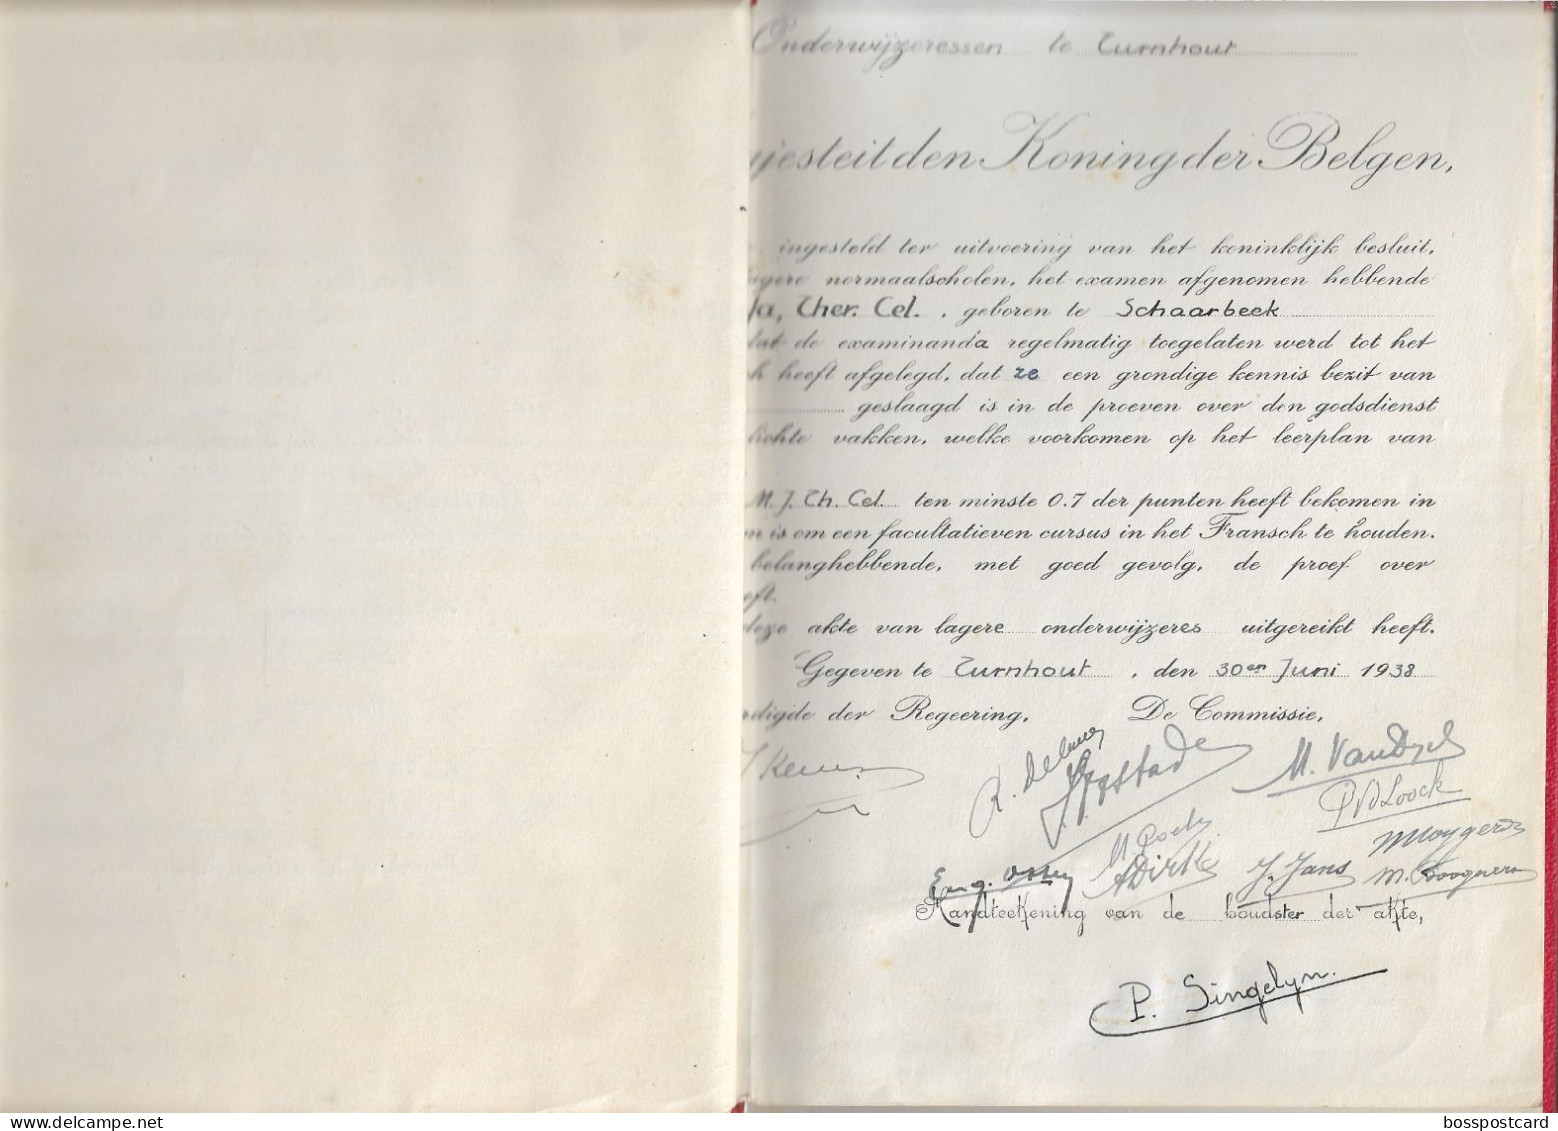 Onderwijzeressen te Turnhout
ajesteit den Koning der Belgen,
ingesteld ter uitvoering van het koninklijk besluit,
normaalscholen, het examen afgenomen hebbende
Ther. Cel. , geboren te Schaarbeek
dat de examinanda regelmatig toegelaten werd tot het
heeft afgelegd, dat ze een grondige kennis bezit van
geslaagd is in de proeven over den godsdienst
lichte vakken, welke voorkomen op het leerplan van
M. J. Th. Cel. ten minste 0.7 der punten heeft bekomen in
is om een facultatieven cursus in het Fransch te houden.
belanghebbende, met goed gevolg, de proef over
eft.
deze akte van lagere onderwijzeres uitgereikt heeft.
Gegeven te Turnhout , den 30en Juni 1938
digde der Regeering, De Commissie,
M. VanDyck
J. Jans
Handteekening van de houdster der akte,
P. Singelyn.
bosspostcard